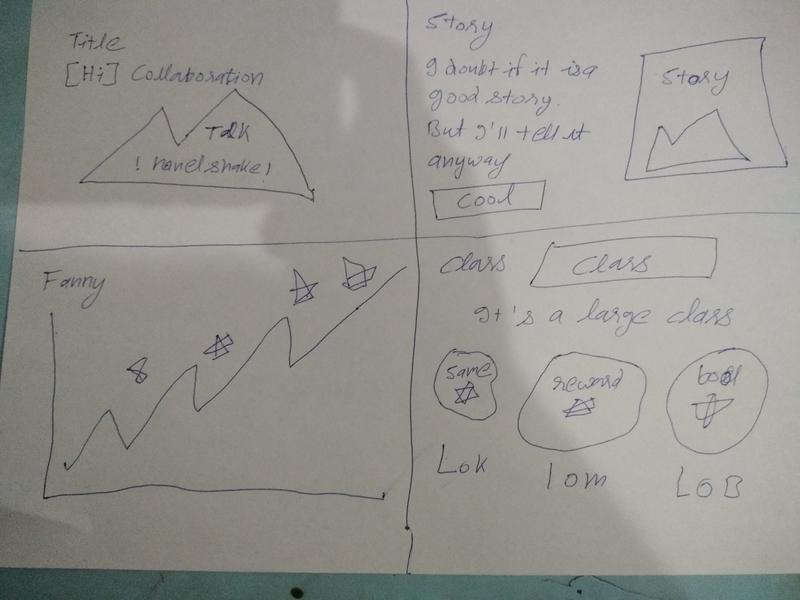 Title
[Hi] Collaboration
Talk
Story
I doubt if it is a
good story.
But I'll tell it
anyway
Story
cool
Fanny
class
class
It's a large class
same
reward
LOK
10m
LOB